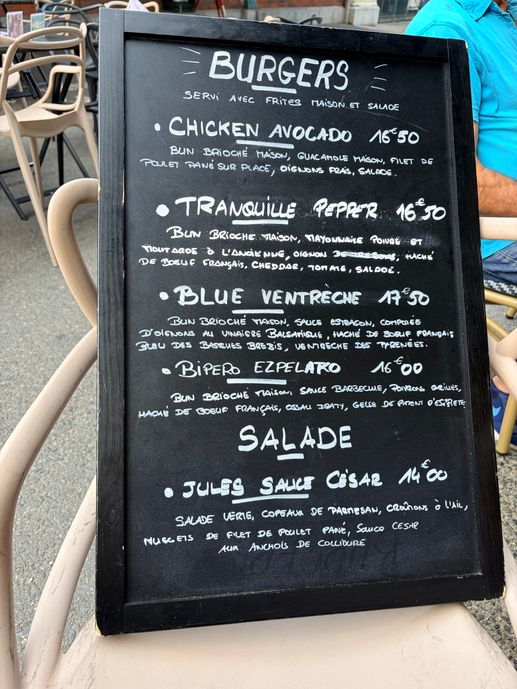 BURGERS
SERVI AVEC FRITES MAISON ET SALADE
• CHICKEN AVOCADO 16€50
BUN BRIOCHÉ MAISON, GUACAMOLE MAISON, FILET DE
POULET PANÉ SUR PLACE, OIGNONS FRAIS, SALADE.
• TRANQUILLE PEPPER 16€50
BUN BRIOCHE MAISON, MAYONNAISE POIVRE ET
MOUTARDE À L'ANCIENNE, OIGNON HACHÉ
DE BOEUF FRANÇAIS, CHEDDAR, TOMATE, SALADE.
• BLUE VENTRÈCHE 17€50
BUN BRIOCHÉ MAISON, SAUCE ESTRAGON, COMPOTÉE
D'OIGNONS AU VINAIGRE BALSAMIQUE, HACHÉ DE BOEUF FRANÇAIS
BLEU DES BASQUES BREBIS, VENTRÈCHE DES PYRÉNÉES.
• BIPERO EZPELAKO 16€00
BUN BRIOCHÉ MAISON, SAUCE BARBECUE, POIVRONS GRILLÉS,
HACHÉ DE BOEUF FRANÇAIS, OSSAU IRATY, GELÉE DE PIMENT D'ESPELETTE.
SALADE
• JULES SAUCE CÉSAR 14€00
SALADE VERTE, COPEAUX DE PARMESAN, CROÛTONS À L'AIL,
NUGGETS DE FILET DE POULET PANÉ, SAUCE CESAR
AUX ANCHOIS DE COLLIOURE